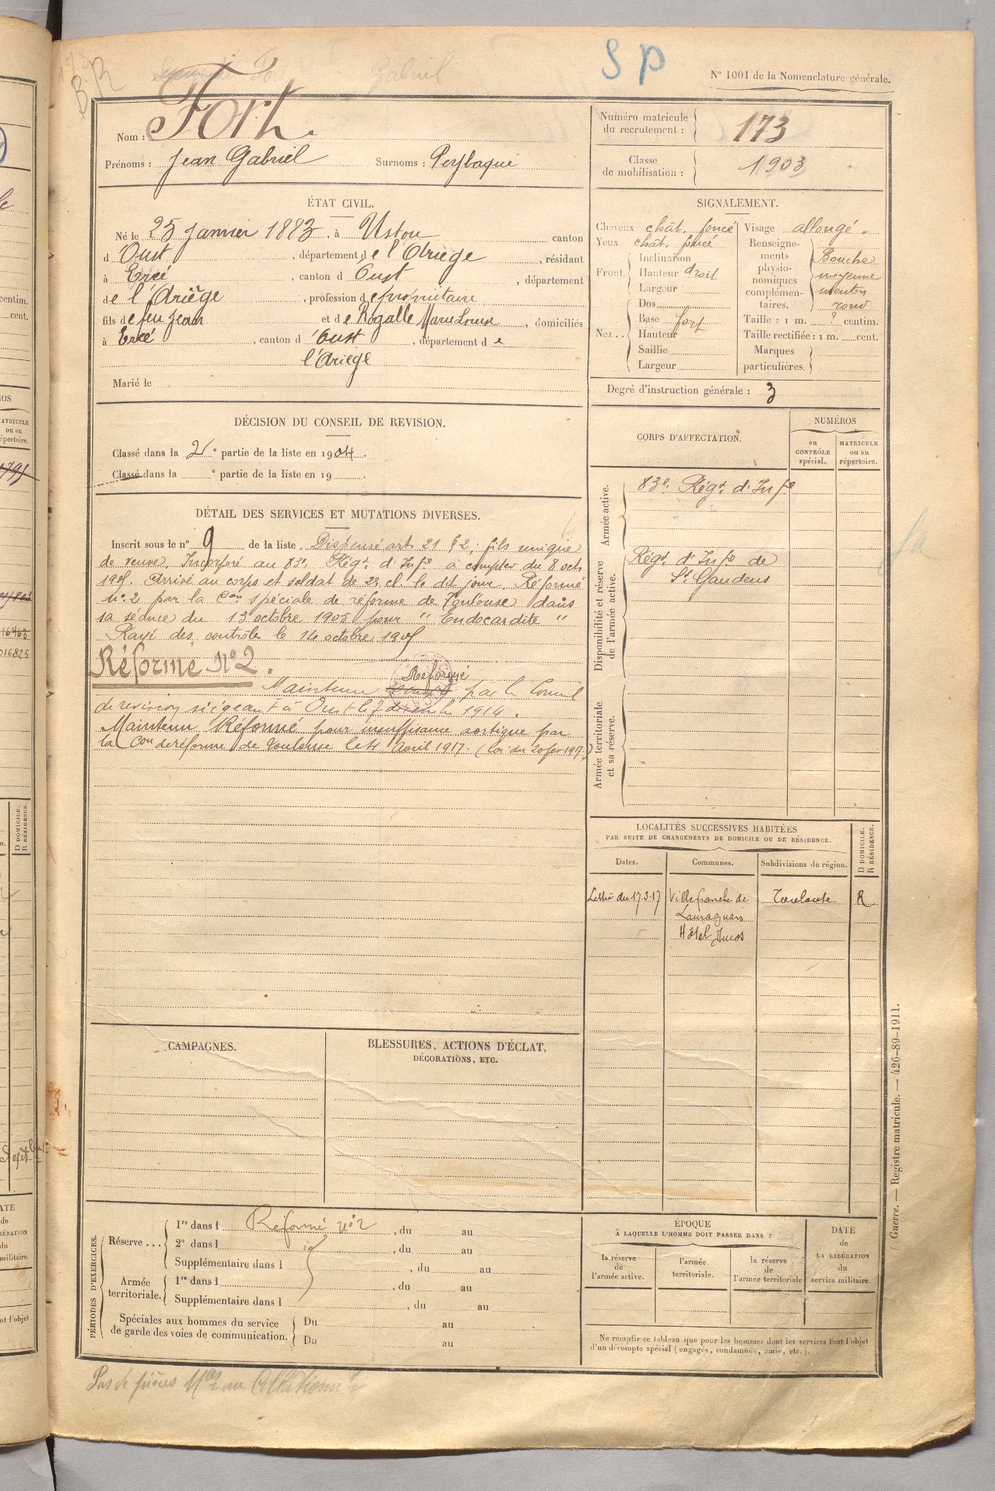 B.R
Fort Gabriel
SP
N° 1001 de la Nomenclature générale.
Nom : Fort.
Prénoms : Jean Gabriel Surnoms : Peybaque
Numéro matricule du recrutement : 173
Classe de mobilisation : 1903
ÉTAT CIVIL.
Né le 25 janvier 1883, à Ustou canton
d'Oust, département de l'Ariège, résidant
à Ercé, canton d'Oust, département
de l'Ariège, profession de propriétaire
fils de feu Jean et de Rogalle Marie Louise, domiciliés
à Ercé, canton d'Oust, département de
l'Ariège
Marié le
SIGNALEMENT.
Cheveux chât. foncé
Yeux chât. foncé
Front. Inclinaison
Hauteur droit
Largeur
Nez.. Dos
Base fort
Hauteur
Saillie
Largeur
Visage allongé.
Renseignements physionomiques complémentaires. Bouche
moyenne
menton
rond
Taille : 1 m. ? centim.
Taille rectifiée : 1 m. cent.
Marques particulières.
Degré d'instruction générale : 3
DÉCISION DU CONSEIL DE REVISION.
Classé dans la 2e partie de la liste en 1904.
Classé dans la e partie de la liste en 19 .
CORPS D'AFFECTATION.
NUMÉROS
DU CONTRÔLE spécial.
MATRICULE ou au répertoire.
Armée active.
83e Régt d'Infie
Disponibilité et réserve de l'armée active.
Régt d'Infie de
St Gaudens
Armée territoriale et sa réserve.
DÉTAIL DES SERVICES ET MUTATIONS DIVERSES.
Inscrit sous le n° 9 de la liste Dispensé art. 21 § 2, fils unique
de veuve, Incorporé au 83e Régt d'Infie à compter du 8 octe
1905. Arrivé au corps et soldat de 2e cl. le dit jour. Réformé
N° 2 par la Con spéciale de réforme de Toulouse dans
sa séance du 13 octobre 1905 pour "Endocardite"
Rayé des contrôle le 14 octobre 1905
Réformé N° 2.
Réformé
Maintenu par le Conseil
de revision siégeant à Oust le 7 décembre 1914.
Maintenu Réformé pour insuffisance aortique par
la Con de réforme de Toulouse le 11 Avril 1917. (Loi du 20 fer 1917)
LOCALITÉS SUCCESSIVES HABITÉES
PAR SUITE DE CHANGEMENTS DE DOMICILE OU DE RÉSIDENCE.
Dates.
Communes.
Subdivisions de région.
D DOMICILE.
R RÉSIDENCE.
Lettre du 17.3.17 Villefranche de Toulouse R
Lauraguais
Hôtel
CAMPAGNES.
BLESSURES, ACTIONS D'ÉCLAT,
DÉCORATIONS, ETC.
PÉRIODES D'EXERCICES.
Réserve... 1re dans l Réformé n° 2, du au
2e dans l , du au
Supplémentaire dans l , du au
Armée territoriale. 1re dans l , du au
Supplémentaire dans l , du au
Spéciales aux hommes du service de garde des voies de communication. Du au
Du au
ÉPOQUE
À LAQUELLE L'HOMME DOIT PASSER DANS :
la réserve de l'armée active.
l'armée territoriale.
la réserve de l'armée territoriale
DATE
de
LA LIBÉRATION
du
service militaire.
Ne remplir ce tableau que pour les hommes dont les services font l'objet
d'un décompte spécial (engagés, condamnés, omis, etc.).
Guerre. — Registre matricule. — 426-89-1911.
Pas de frères